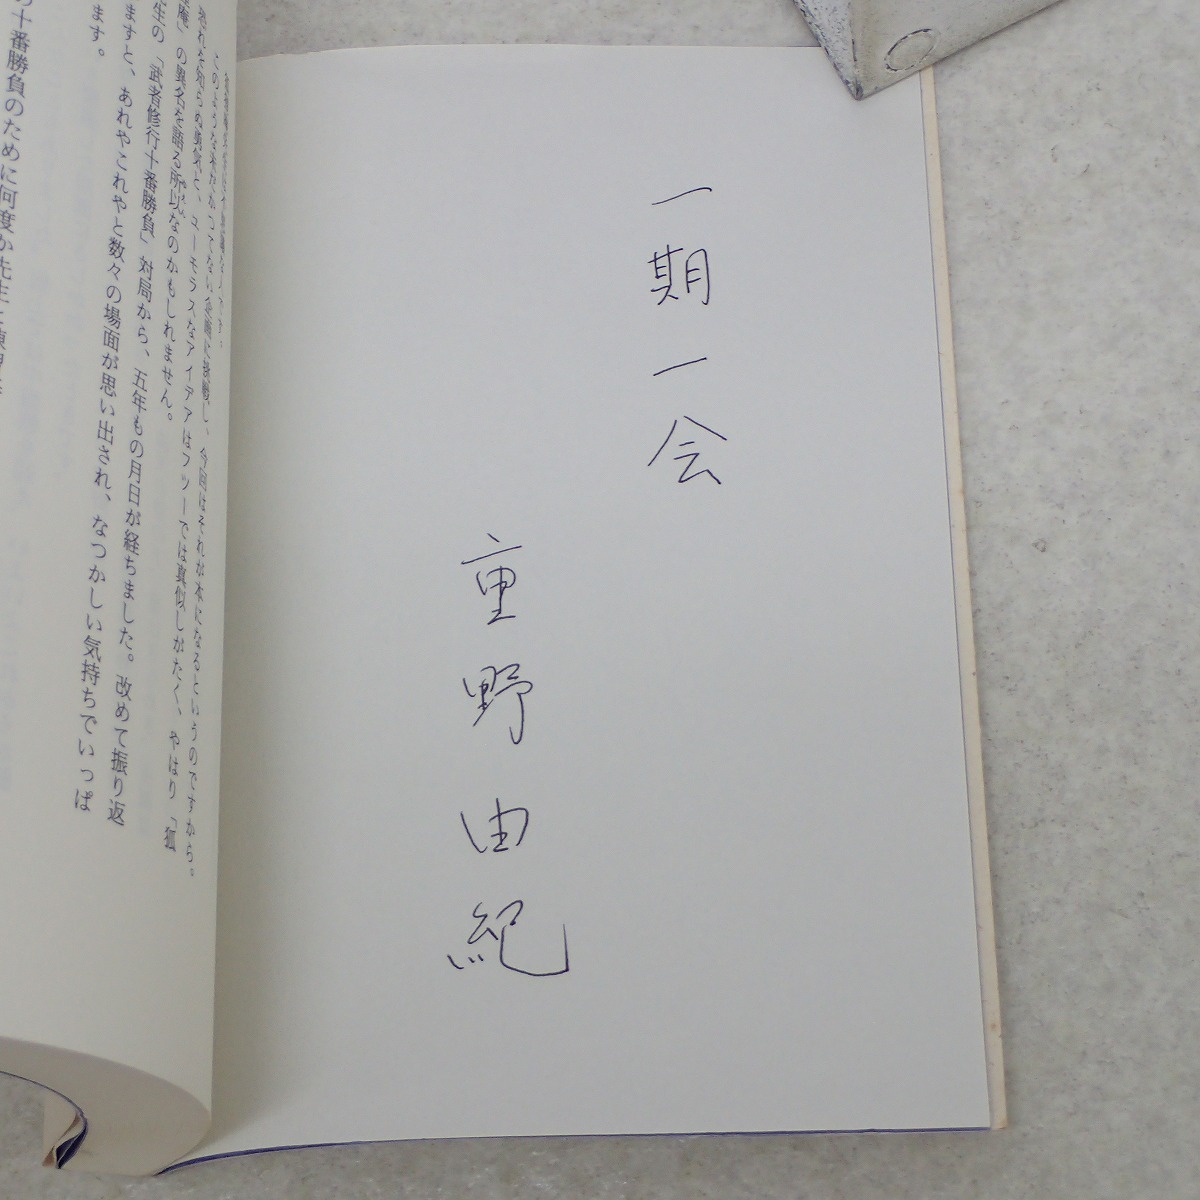 一期一会
重野由紀
このような来れかつてない企画に挑戦し、今回はそれが本になるというのですから。
恐れを知らぬ勇気と、ユーモラスなアイデアはフツーでは真似しがたく、やはり「狐
庵」の異名を語る所以なのかもしれません。
生の「武者修行十番勝負」対局から、五年もの月日が経ちました。改めて振り返
ますと、あれやこれやと数々の場面が思い出され、なつかしい気持ちでいっぱ
ます。
十番勝負のために何度か先生と